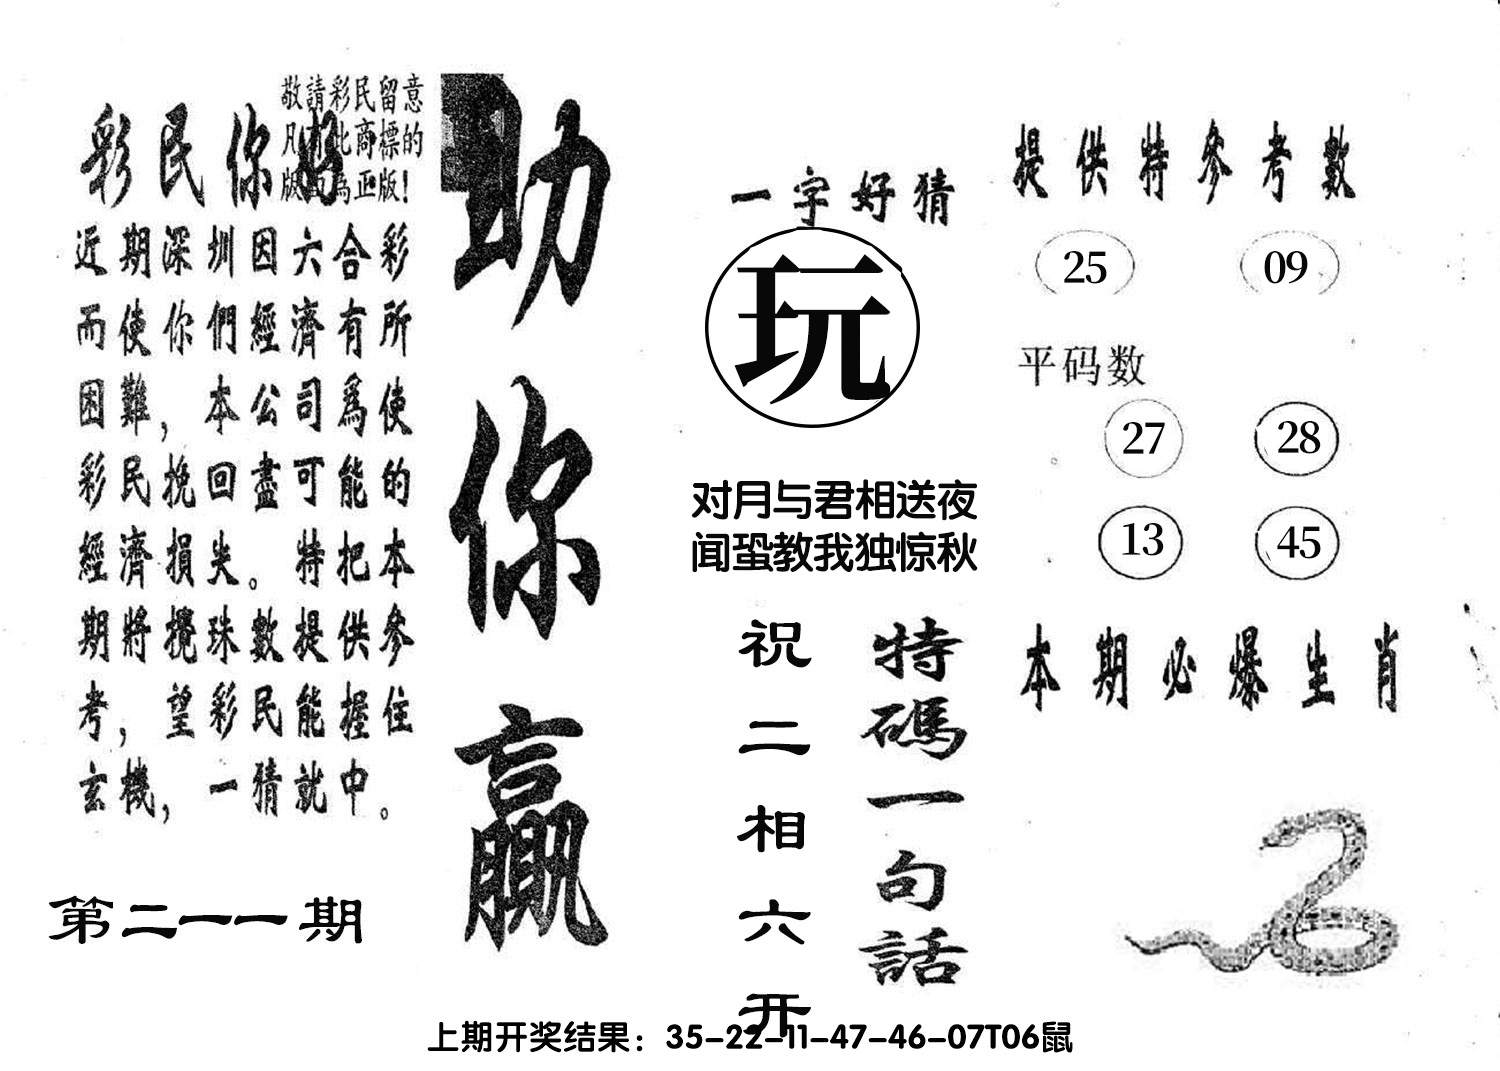 敬請彩民留意
凡有此商標的
版面為正版!
彩民你好
近期深圳因六合彩
而使你們經濟有所
困難，本公司爲使
彩民挽回盡可能的
經濟損失。特把本
期將攪珠數提供參
考，望彩民能握住
玄機，一猜就中。
第二一一期
助你贏
一字好猜
玩
对月与君相送夜
闻蛩教我独惊秋
特碼一句話
祝二相六开
提供特參考數
25 09
平码数
27 28
13 45
本期必爆生肖
上期开奖结果：35-22-11-47-46-07T06鼠